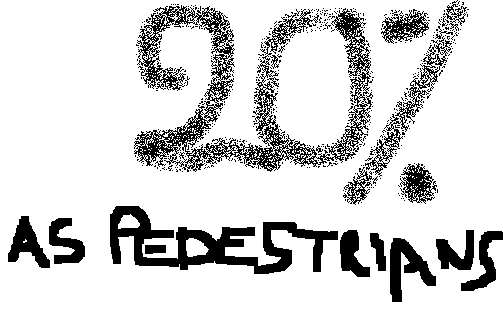 20%
AS PEDESTRIANS